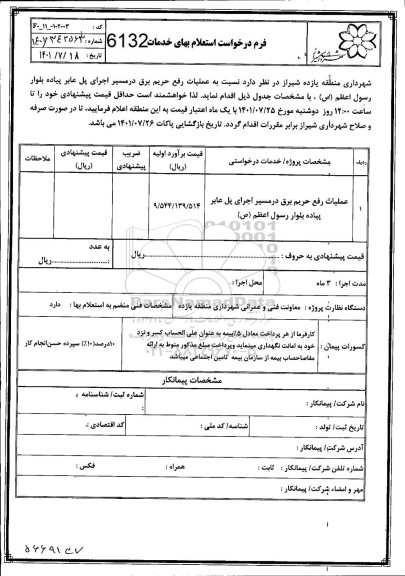 کد : F-۱۱-۰۱-۲۰۰۳
شماره : ۱۴۰۷۳۴۳۵۶۳
تاریخ : ۱۴۰۱/۷/۱۸
فرم درخواست استعلام بهای خدمات 6132
شهرداری منطقه یازده شیراز در نظر دارد نسبت به عملیات رفع حریم برق درمسیر اجرای پل عابر پیاده بلوار
رسول اعظم (ص) ، با مشخصات جدول ذیل اقدام نماید. لذا خواهشمند است حداقل قیمت پیشنهادی خود را تا
ساعت ۱۲:۰۰ روز دوشنبه مورخ ۱۴۰۱/۰۷/۲۵ با یک ماه اعتبار قیمت به این منطقه اعلام فرمایید، تا در صورت صرفه
و صلاح شهرداری شیراز برابر مقررات اقدام گردد. تاریخ بازگشایی پاکات ۱۴۰۱/۰۷/۲۶ می باشد.
ردیف مشخصات پروژه/ خدمات درخواستی قیمت برآورد اولیه (ریال) ضریب پیشنهادی قیمت پیشنهادی (ریال) ملاحظات
۱ عملیات رفع حریم برق درمسیر اجرای پل عابر ۹/۵۴۴/۱۳۹/۵۱۴
پیاده بلوار رسول اعظم (ص)
قیمت پیشنهادی به حروف : ........ریال به عدد :........ریال
مدت اجرا : ۳ ماه محل اجرا :
دستگاه نظارت پروژه : معاونت فنی و عمرانی شهرداری منطقه یازده مشخصات فنی منضم به استعلام بها : دارد
کسورات پیمان : کارفرما از هر پرداخت معادل ۵٪ بیمه به عنوان علی الحساب کسر و نزد ۱۰درصد(۱۰٪) سپرده حسن انجام کار
خود به امانت نگهداری مینماید وپرداخت مبلغ مذکور منوط به ارائه
مفاصاحساب بیمه از سازمان بیمه تامین اجتماعی میباشد
مشخصات پیمانکار
نام شرکت/ پیمانکار : شماره ثبت/ شناسنامه :
تاریخ ثبت/ تولد : شناسه/ کد ملی : کد اقتصادی :
آدرس شرکت/ پیمانکار :
شماره تلفن شرکت/ پیمانکار : ثابت : همراه : فکس :
مهر و امضاء شرکت/ پیمانکار :